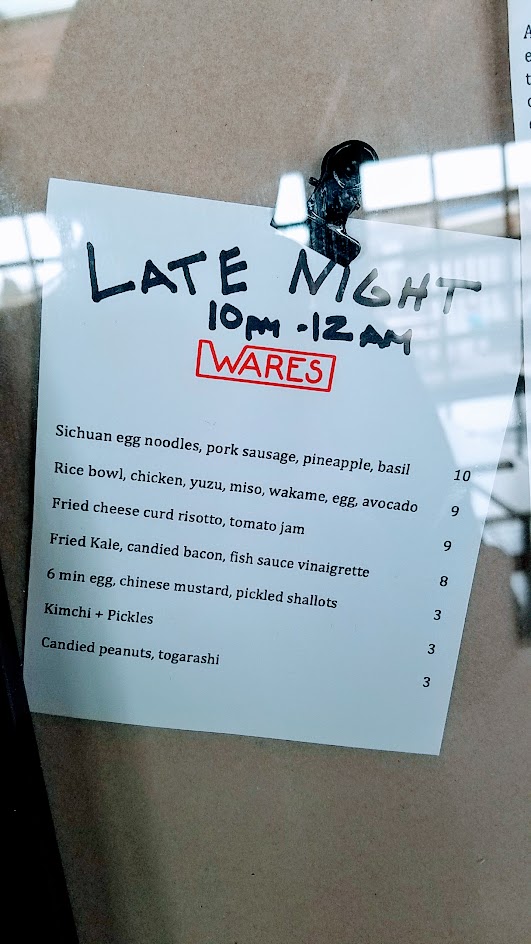 LATE NIGHT
10PM - 12AM
WARES
Sichuan egg noodles, pork sausage, pineapple, basil 10
Rice bowl, chicken, yuzu, miso, wakame, egg, avocado 9
Fried cheese curd risotto, tomato jam 9
Fried Kale, candied bacon, fish sauce vinaigrette 8
6 min egg, chinese mustard, pickled shallots 3
Kimchi + Pickles 3
Candied peanuts, togarashi 3